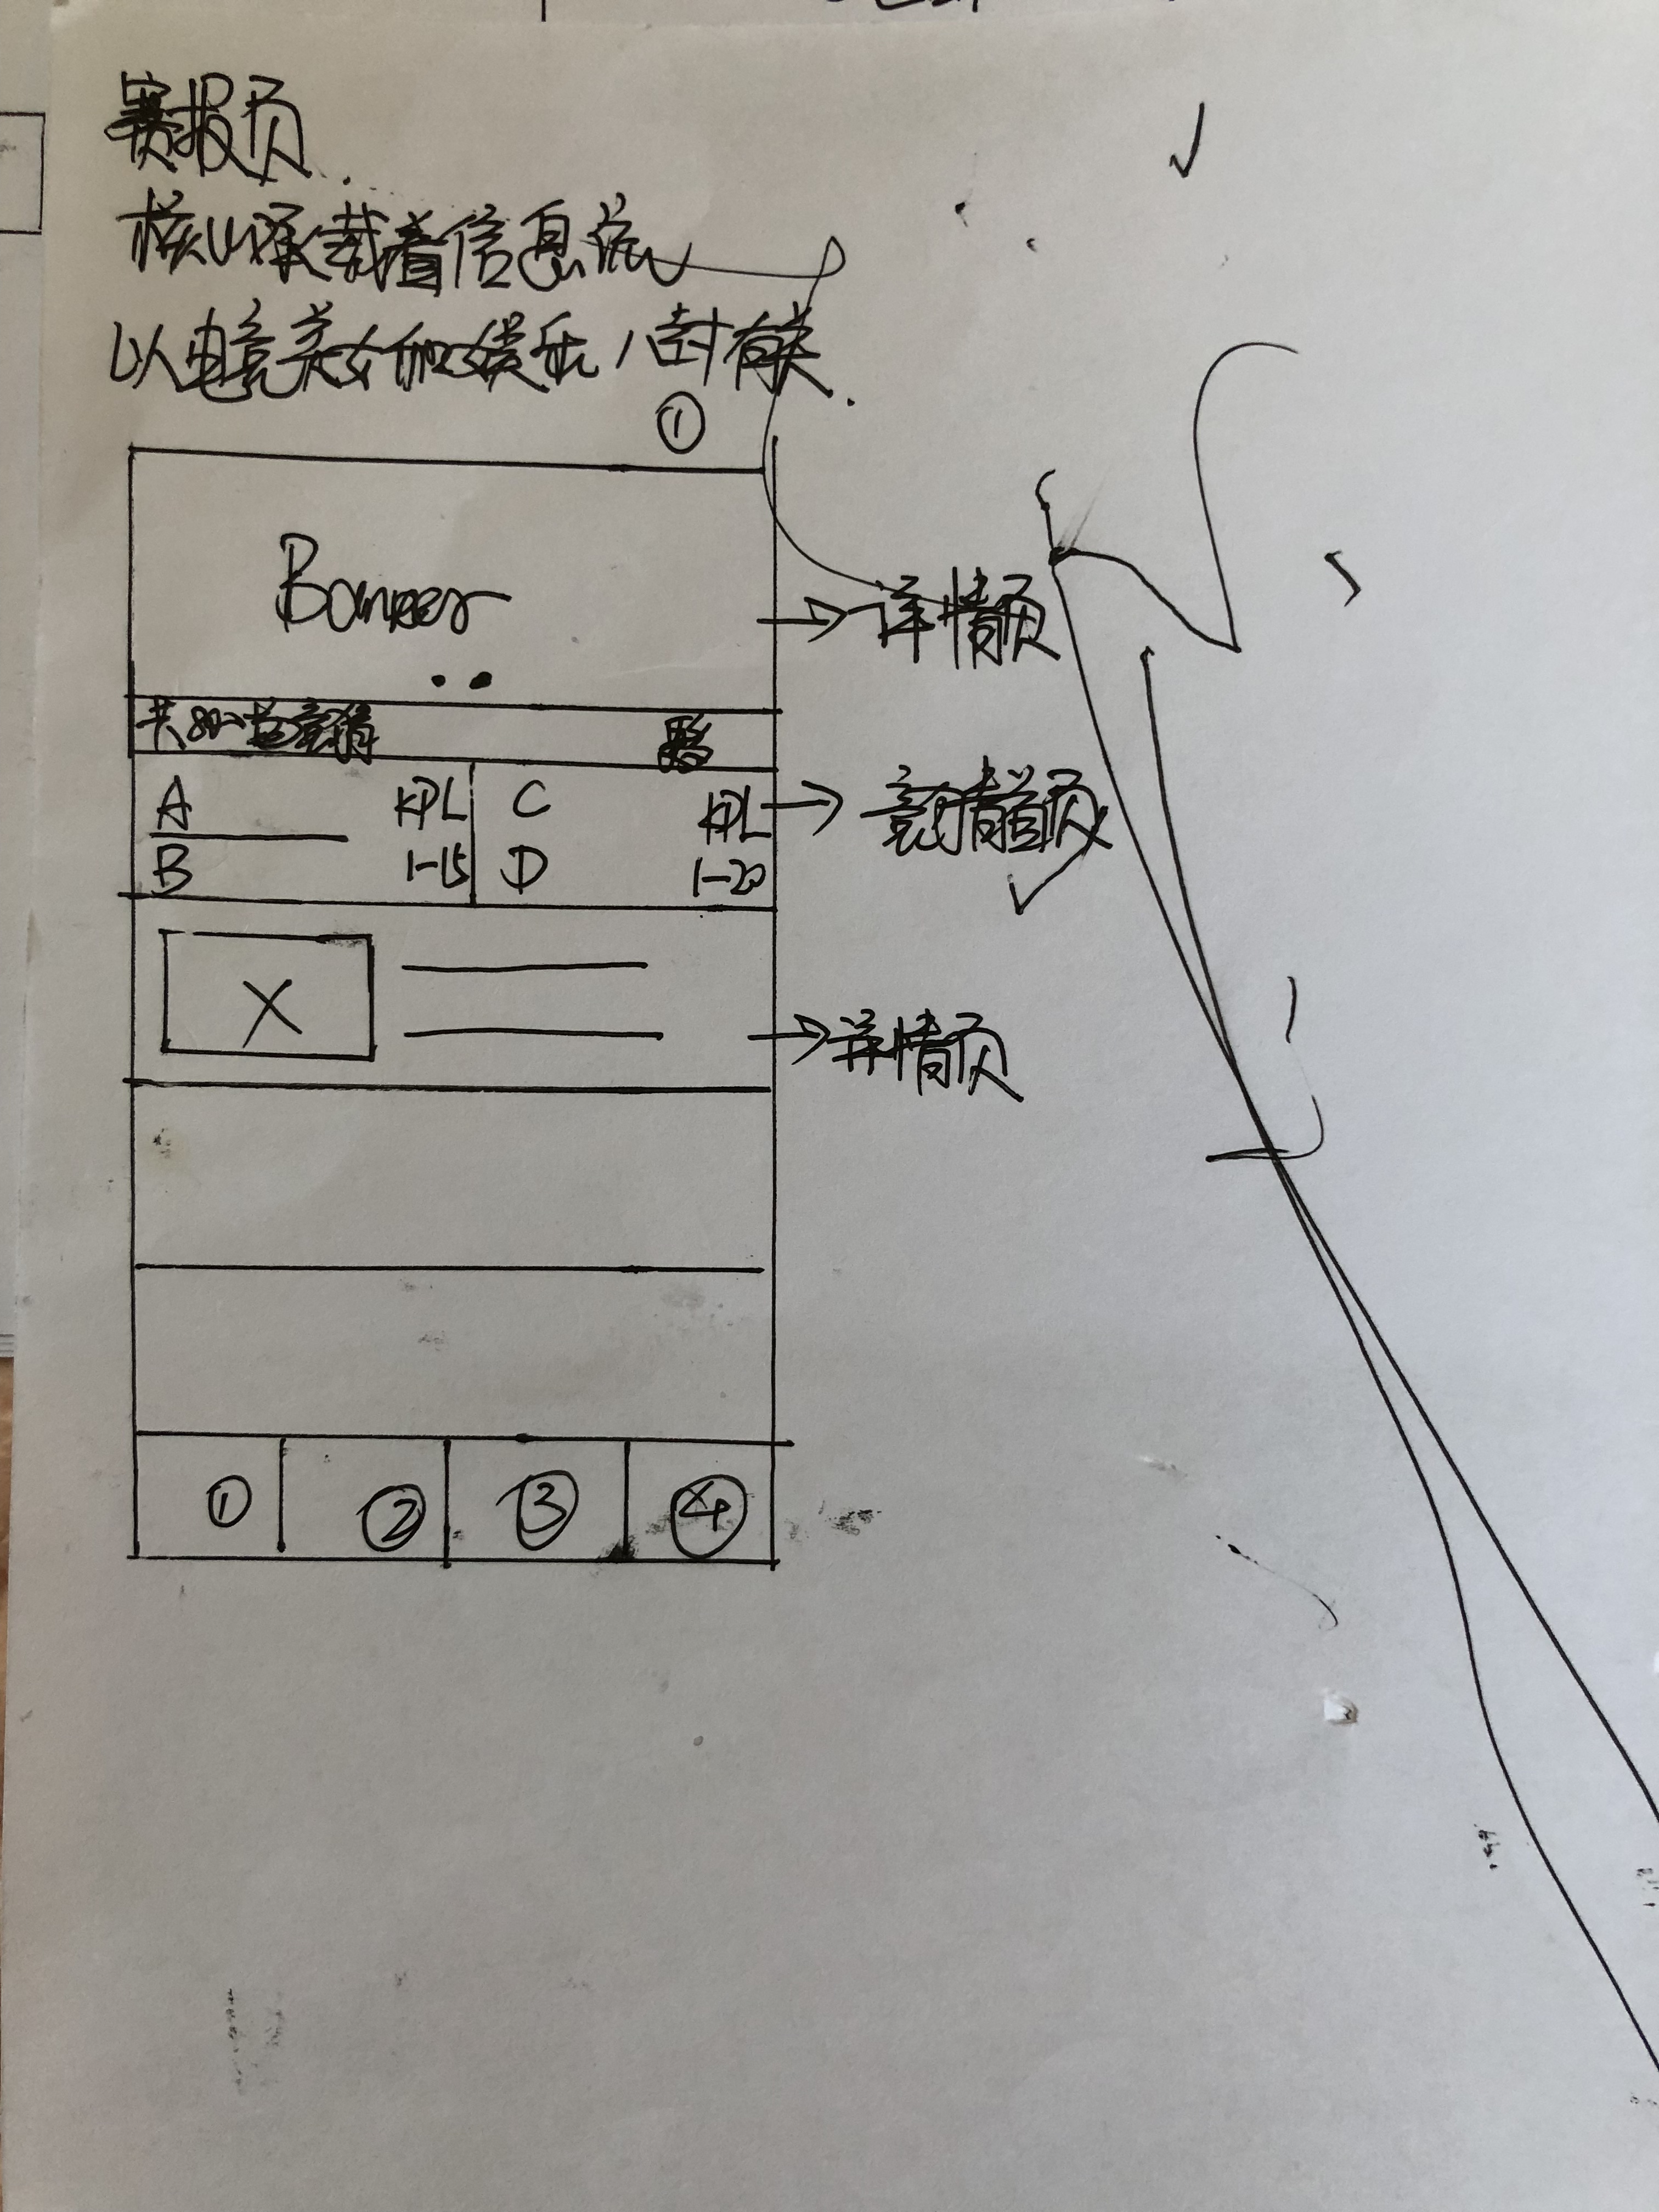 赛报页.
核心承载着信息流
以电竞美女和娱乐八卦有关.
①
Banner
详情页
共80场竞猜
A KPL C KPL
竞猜首页
B 1-15 D 1-20
详情页
① ② ③ ④